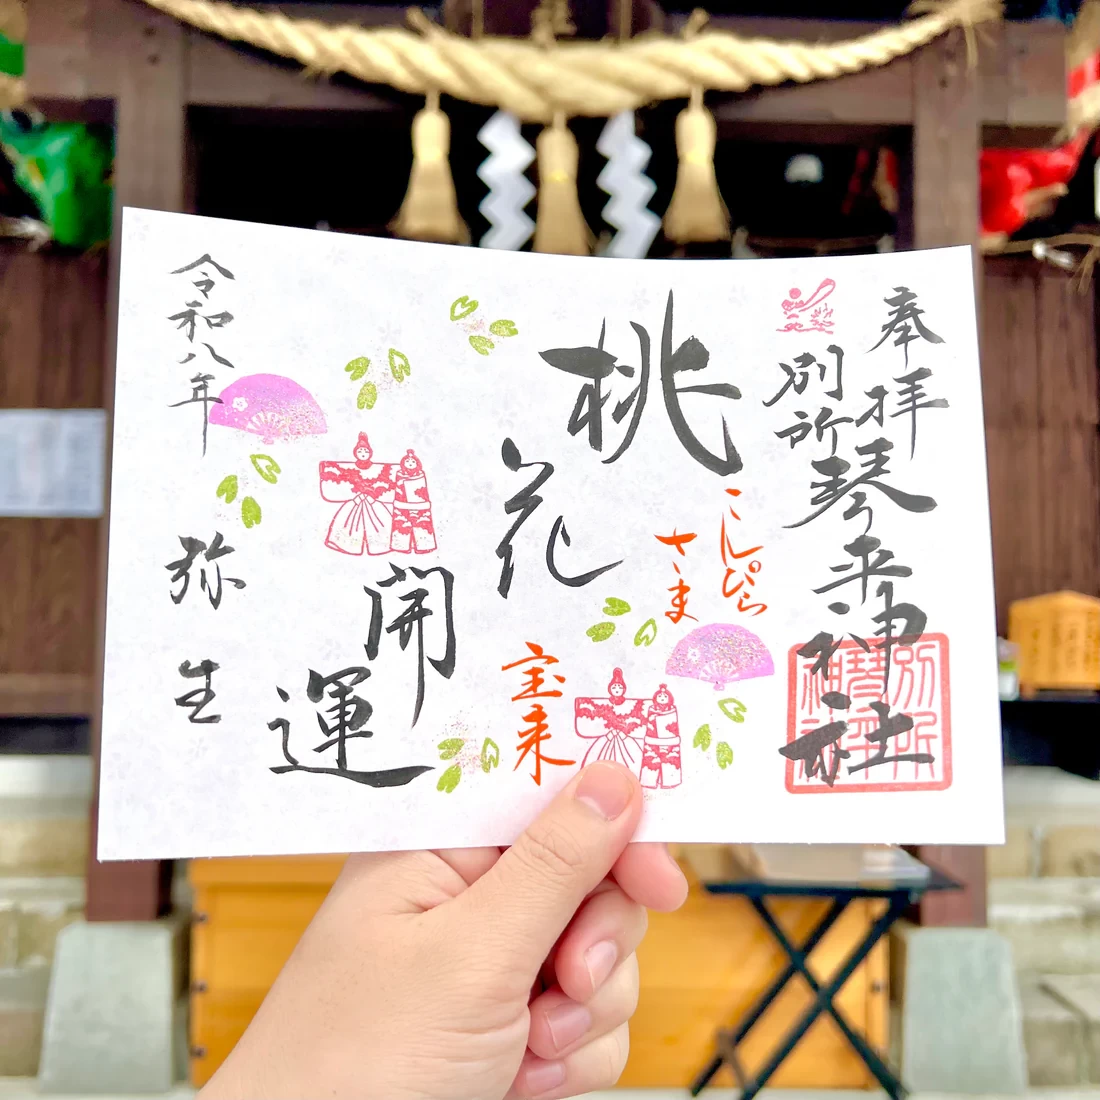 奉拝
別所琴平神社
別所
琴平
神社
桃花
こんぴら
さま
開運
宝来
令和八年
弥生